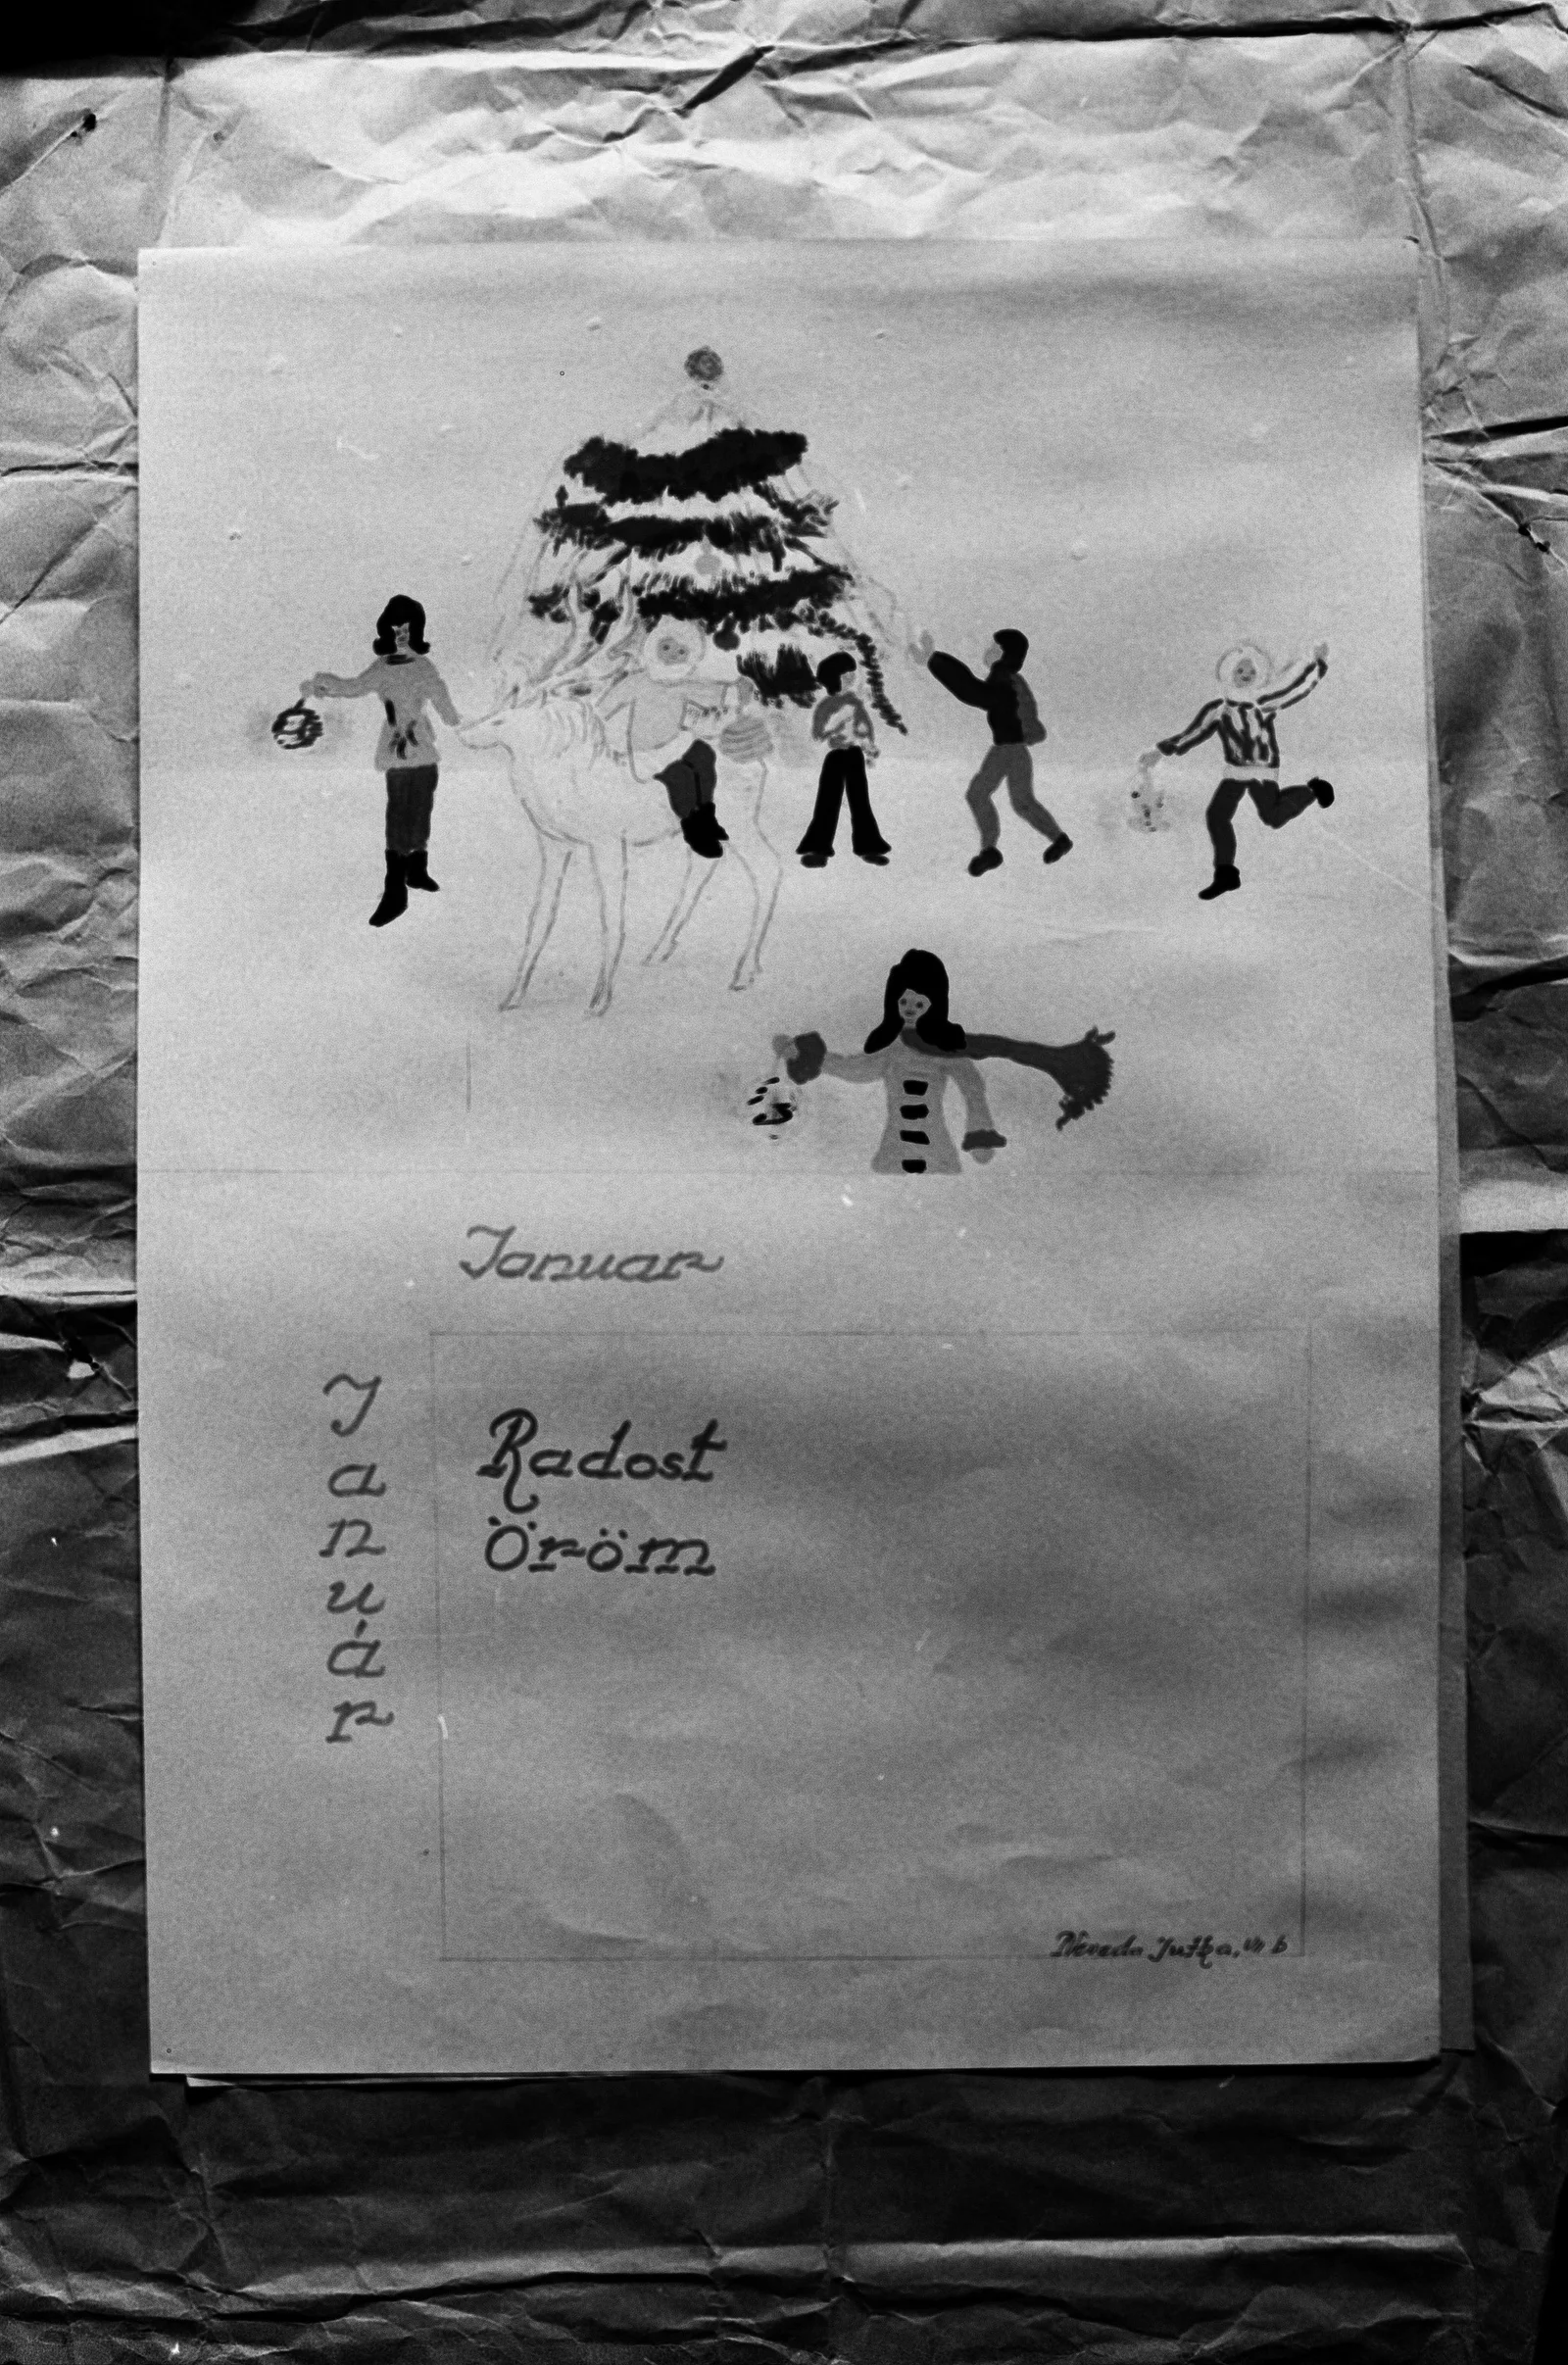 Januar
Január
Radost
Öröm
Neveda Jutka, III b